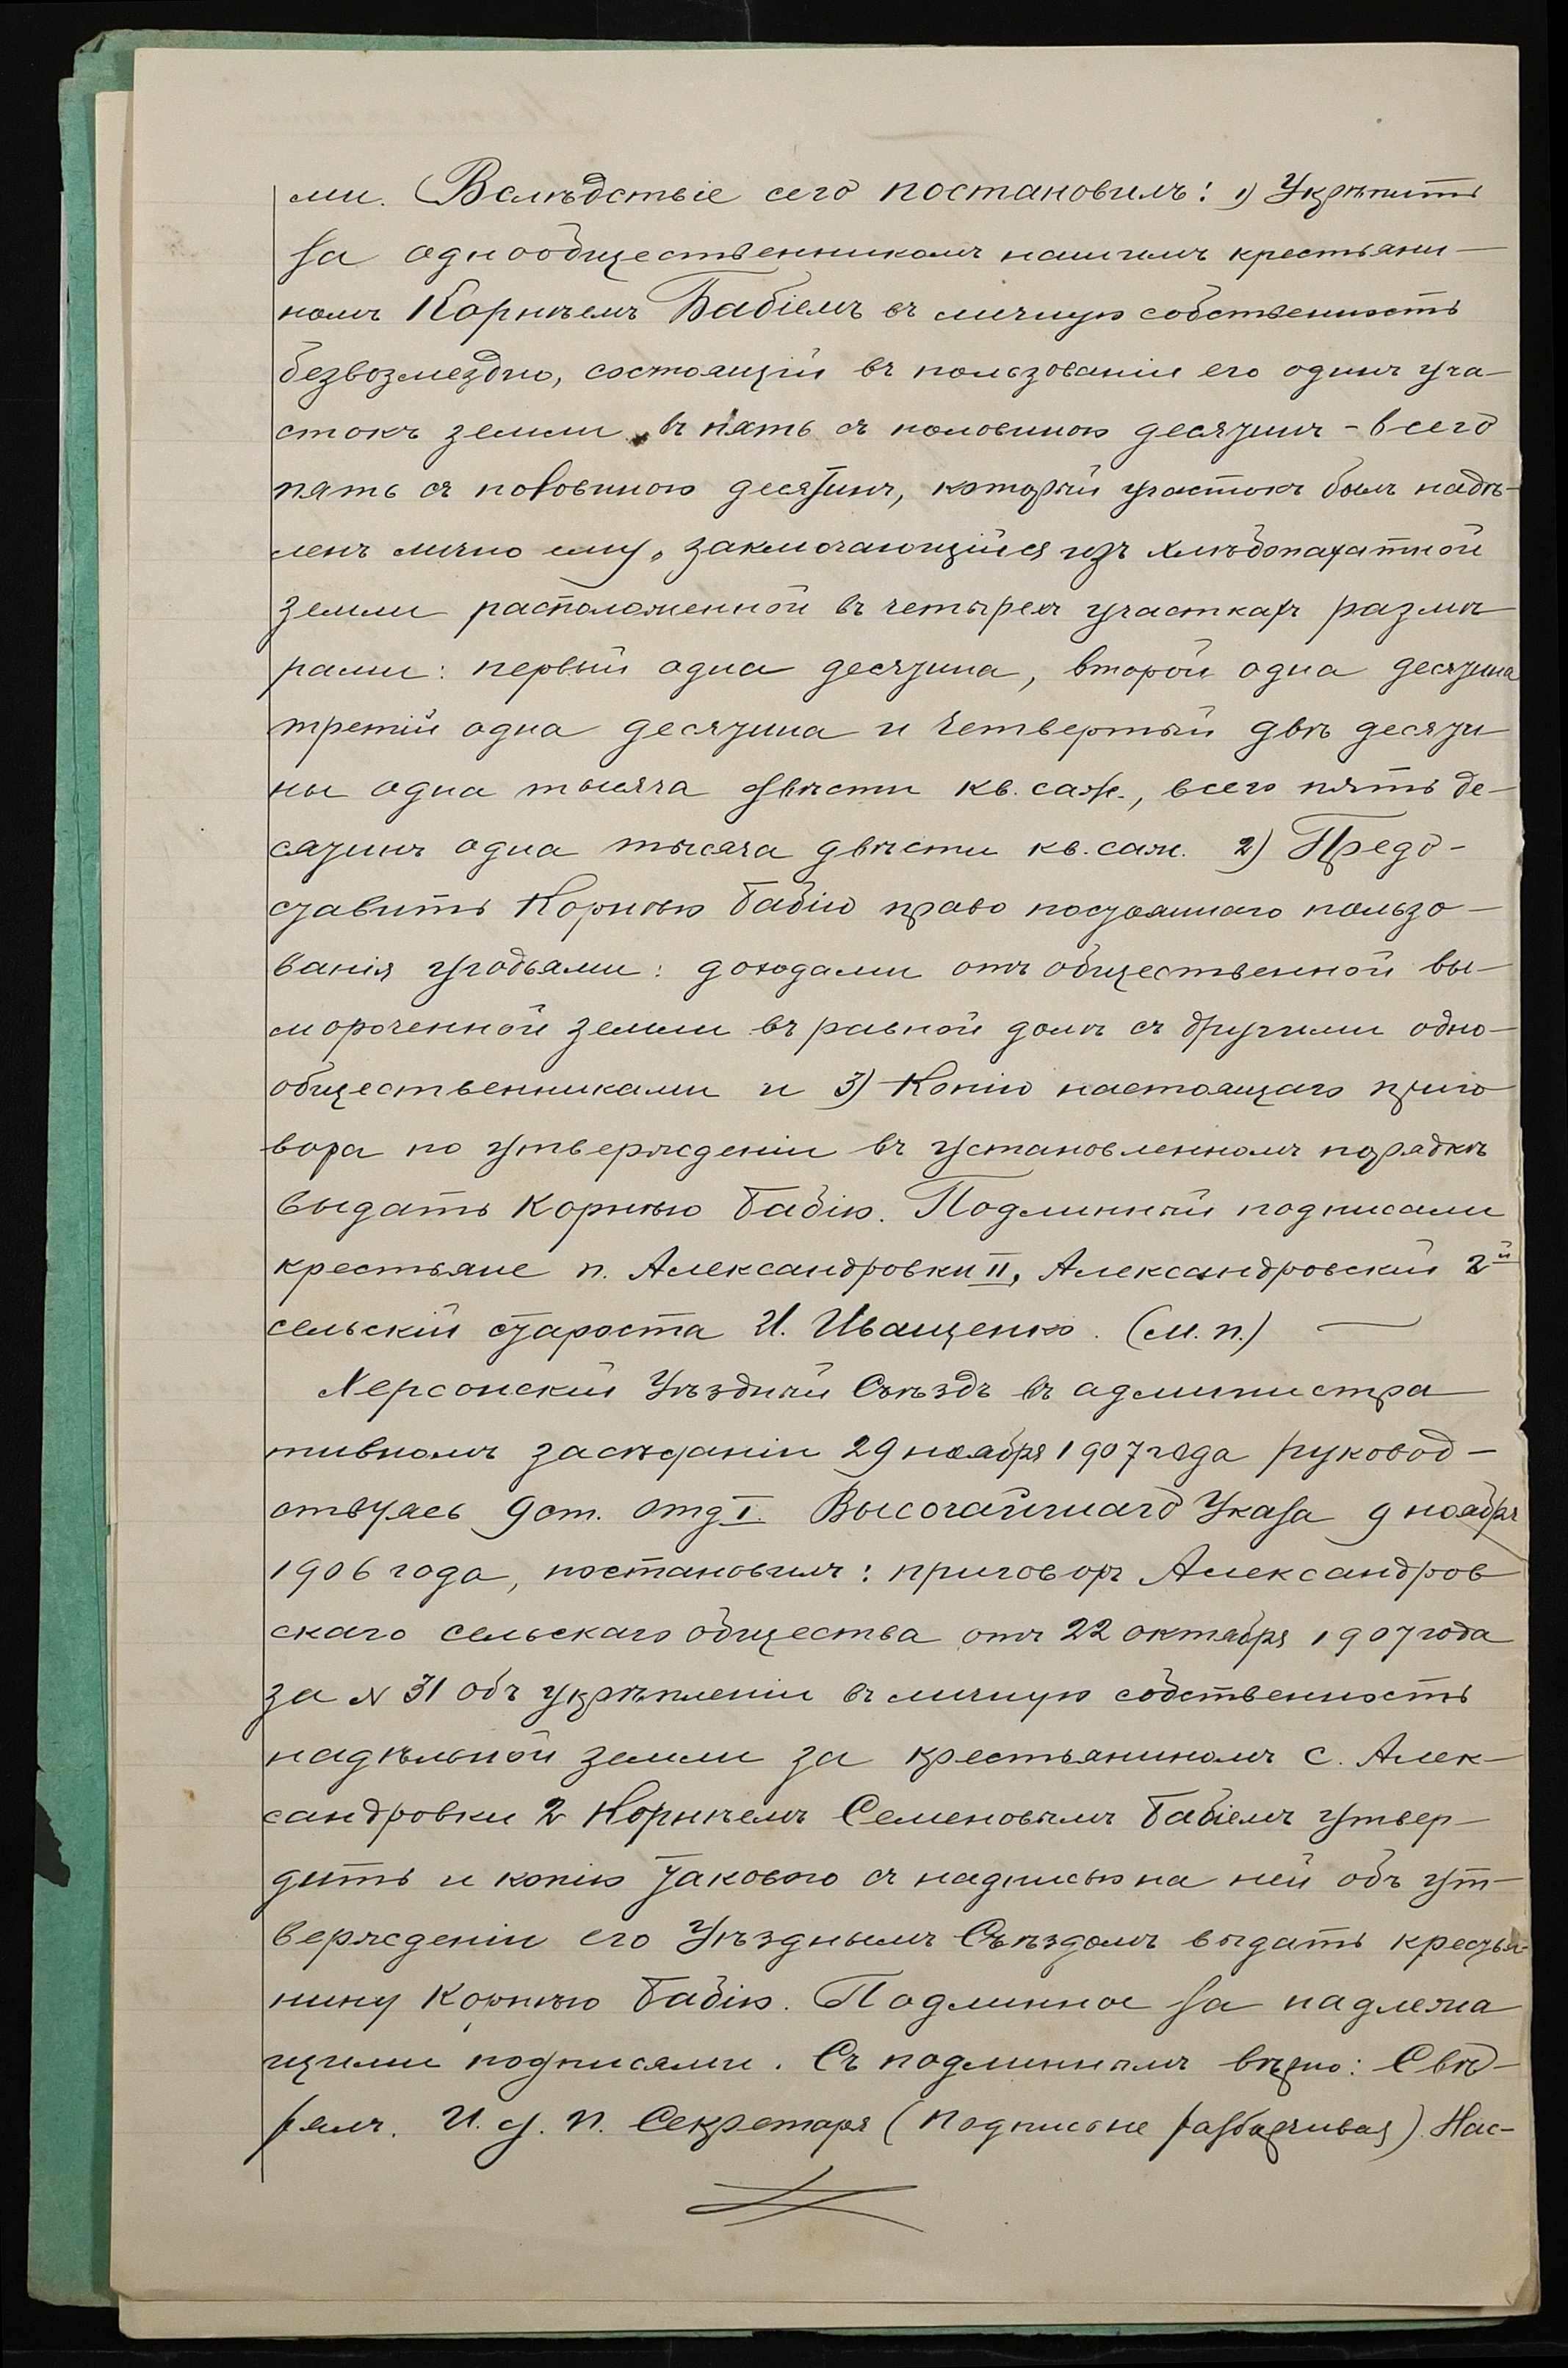 ми. Вслѣдствіе сего постановилъ: 1) Укрѣпить
за однообщественникомъ нашимъ крестьяни-
номъ Корнѣемъ Бабіемъ въ личную собственность
безвозмездно, состоящій въ пользованіи его одинъ уча-
стокъ земли въ пять съ половиною десятинъ - всего
пять съ половиною десятинъ, который участокъ былъ надѣ-
ленъ лично ему, заключающійся изъ хлѣбопахатной
земли расположенной въ четырехъ участкахъ размѣ
рами: первый одна десятина, второй одна десятина
третій одна десятина и четвертый двѣ десяти
ны одна тысяча двѣсти кв. саж., всего пять де-
сятинъ одна тысяча двѣсти кв. саж. 2) Предо-
ставить Корнѣю Бабію право постояннаго пользо-
ванія угодьями: доходами отъ общественной вы-
мороченной земли въ равной долѣ съ другими одно-
общественниками и 3) Копію настоящаго приго
вора по утвержденіи въ установленномъ порядкѣ
выдать Корнѣю Бабію. Подлинный подписали
крестьяне п. Александровки II, Александровскій 2й
сельскій староста И. Иващенко. (М. п.) —
Херсонскій Уѣздный Съѣздъ въ администра
тивномъ засѣданіи 29 ноября 1907 года руковод-
ствуясь 9 ст. отд I. Высочайшаго Указа 9 ноября
1906 года, постановилъ: приговоръ Александров
скаго сельскаго общества отъ 22 октября 1907 года
за № 31 объ укрѣпленіи въ личную собственность
надѣльной земли за крестьяниномъ с. Алек-
сандровки 2 Корнѣемъ Семеновымъ Бабіемъ утвер-
дить и копію такового съ надписью на ней объ ут-
вержденіи его Уѣзднымъ Съѣздомъ выдать крестья-
нину Корнѣю Бабію. Подлинное за надлежа
щими подписями. Съ подлиннымъ вѣрно: Свѣ-
рялъ. И. д. п. Секретаря (подпись не разборчивая). Нас-